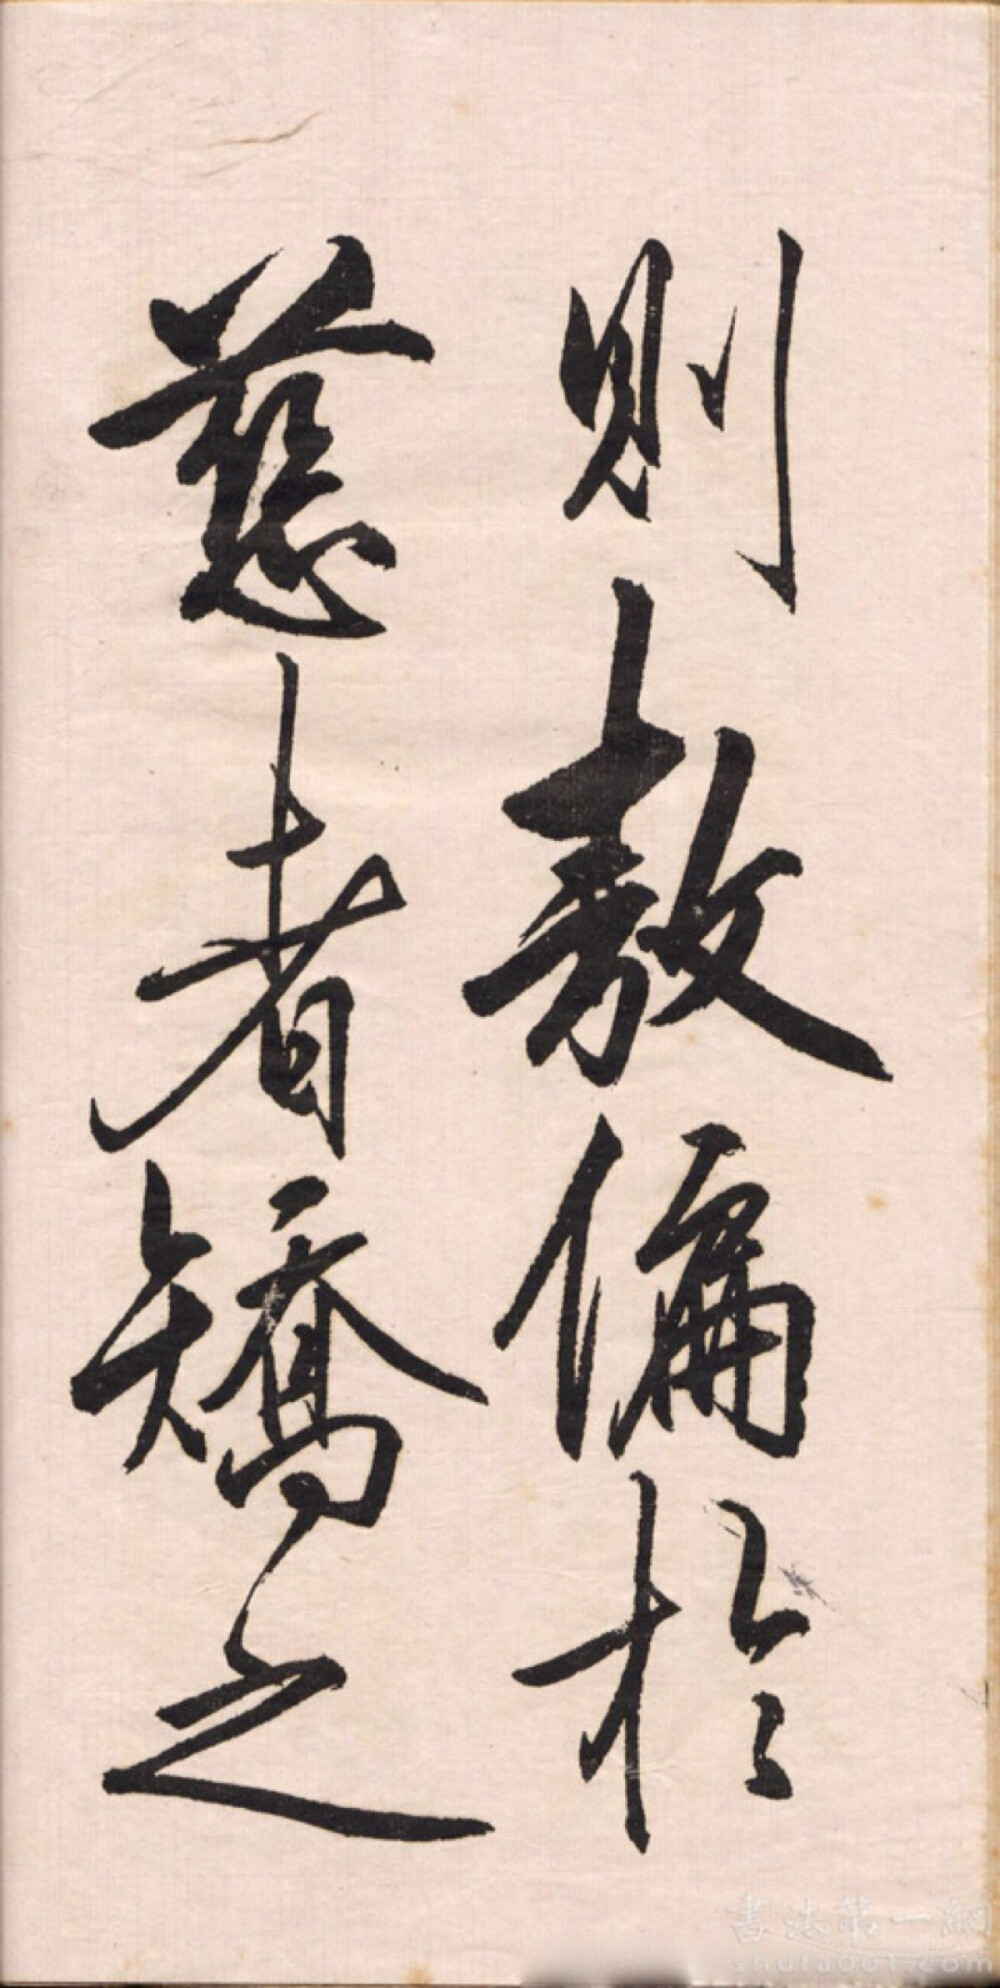 則敖偏於
慈者矯之
書法第一網
shufa001.com